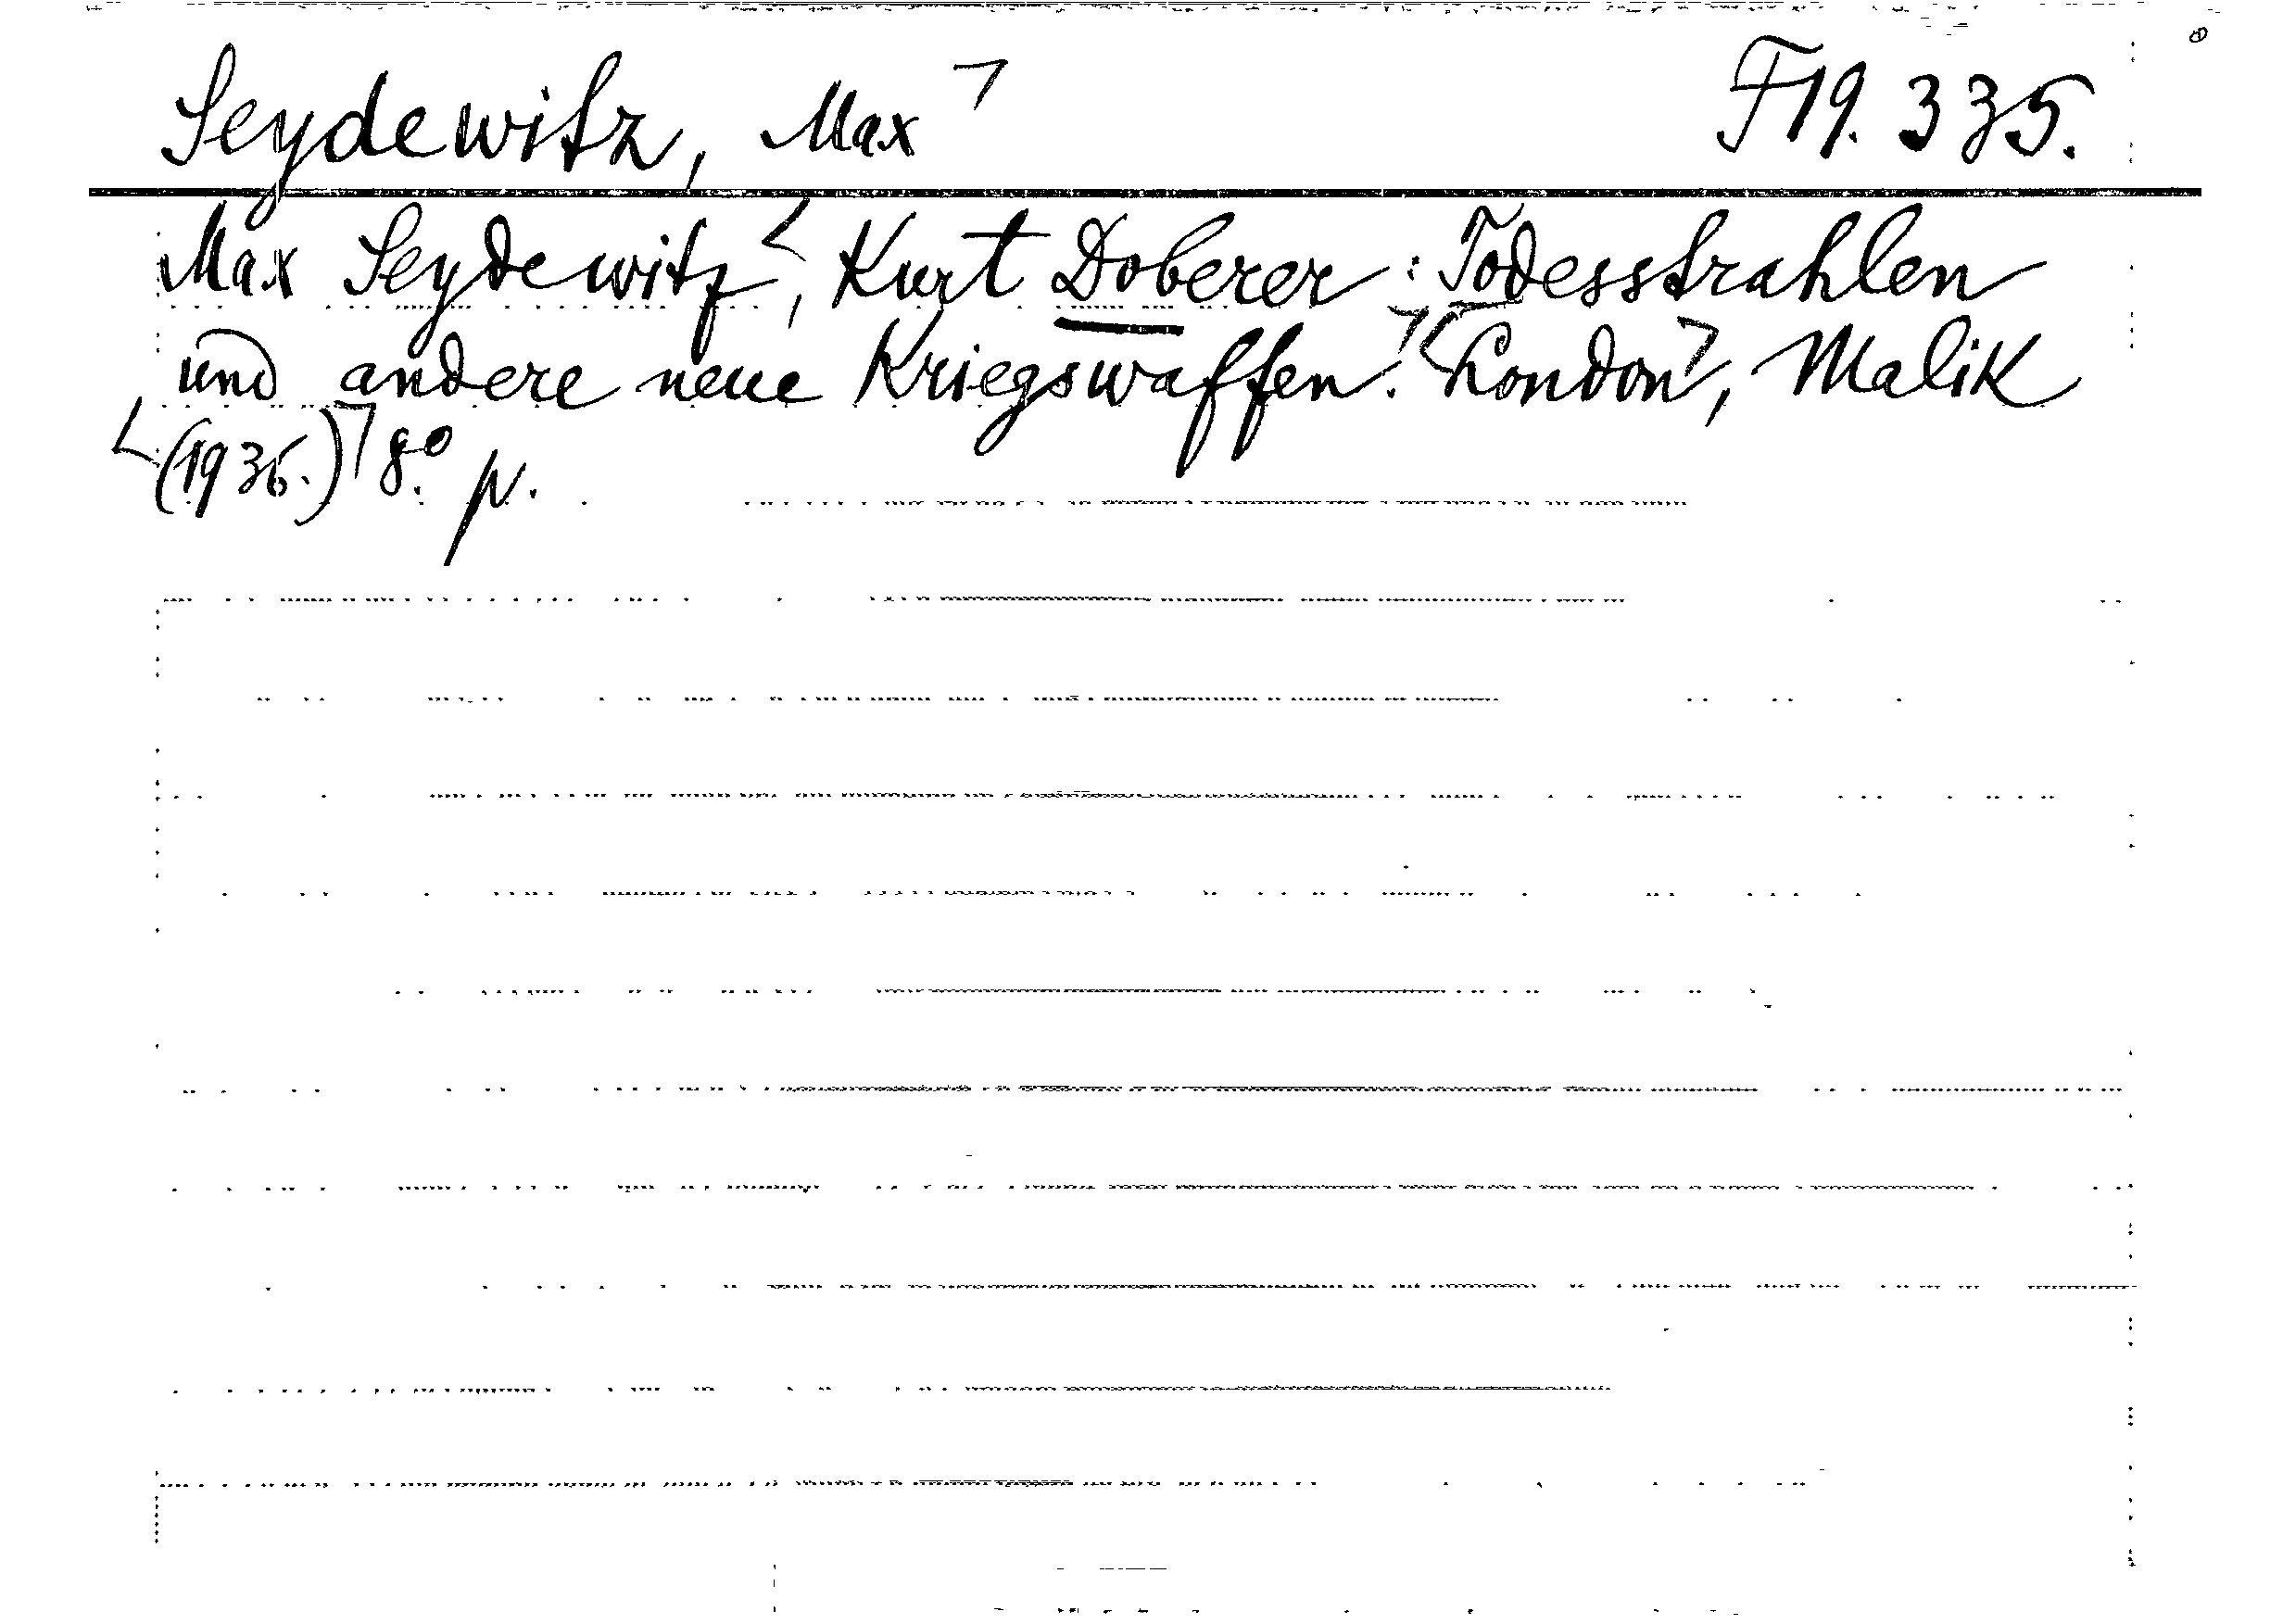 Seydewitz, Max F19.335.
Max Seydewitz, Kurt Doberer: Todesstrahlen
und andere neue Kriegswaffen. London, Malik
(1936.) 8.° p.